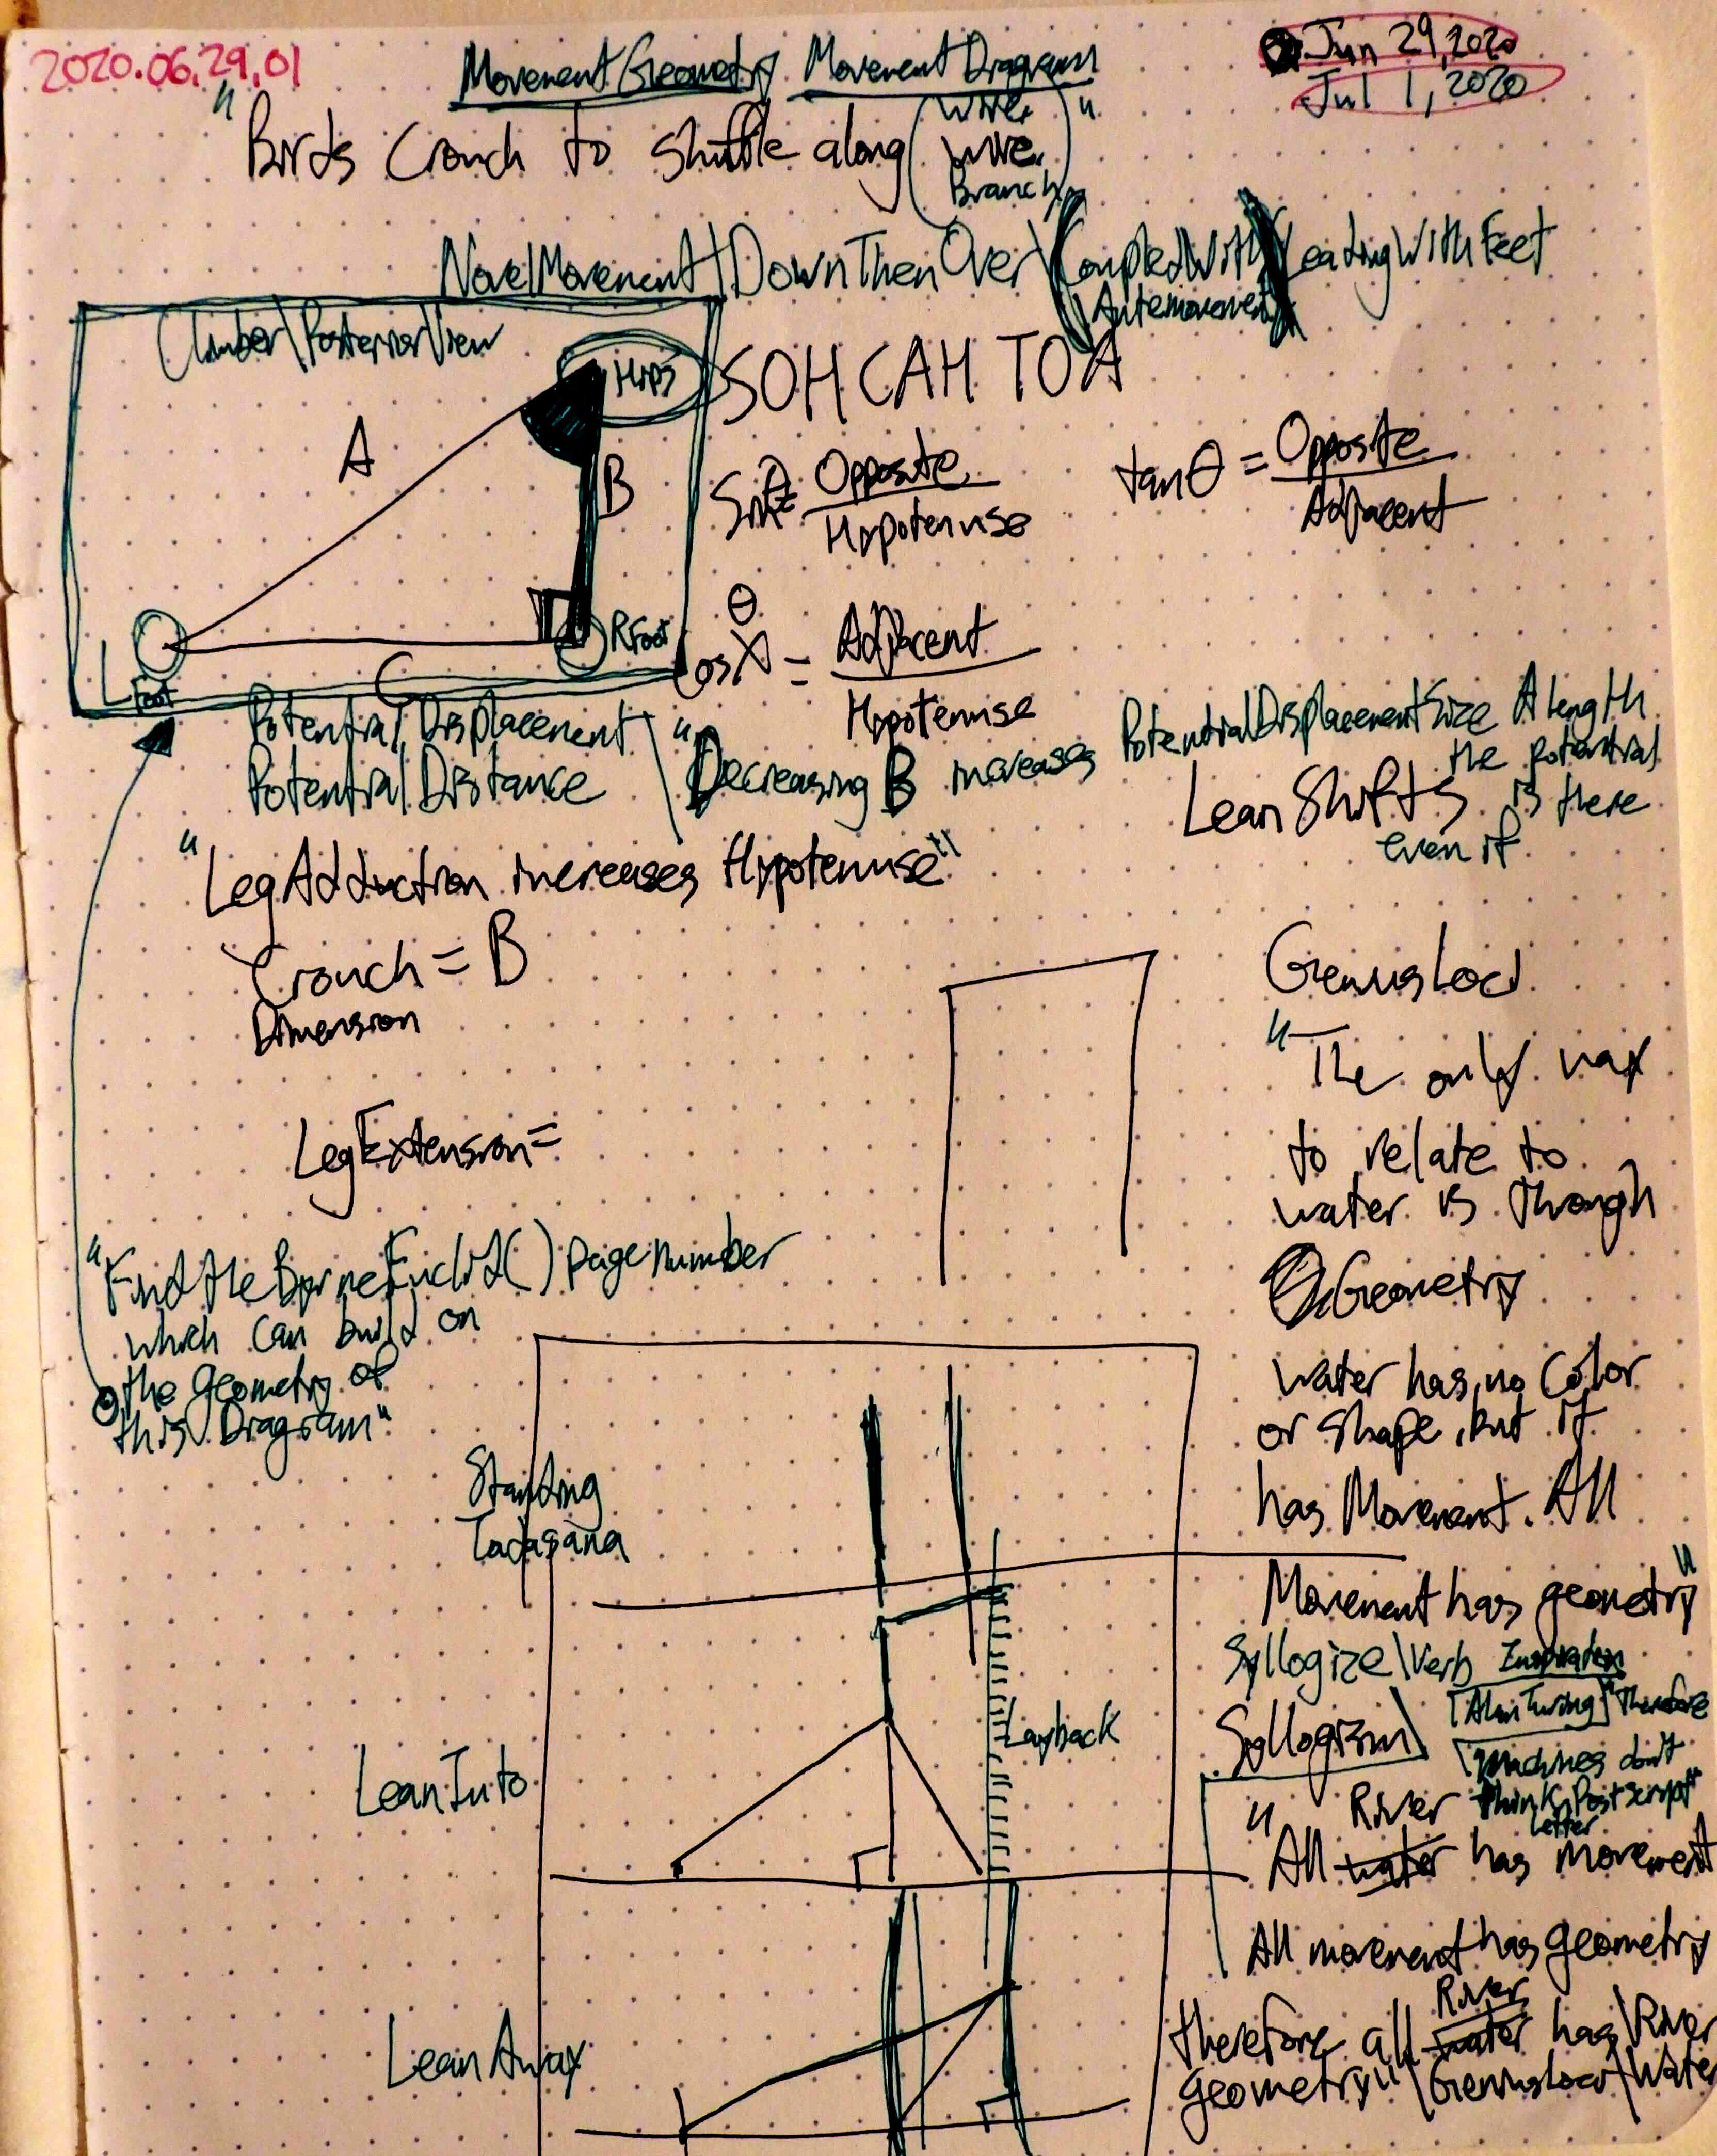 2020.06.29.01
MovementGeometry MovementDiagram
Jun 29, 2020
Jul 1, 2020
"Birds Crouch to shuffle along (Wire, Wire, Branch)"
NovelMovement|DownThenOver\(CoupledWith)LeadingWithFeet
\Antemovement
Climber\PosteriorView
Hips
A
B
C
L Foot
R Foot
SOH CAH TOA
Sinθ = Opposite
Hypotenuse
tanθ = Opposite
Adjacent
θ
Cos = Adjacent
Hypotenuse
Potential Displacement
Potential Distance
"Decreasing B increases PotentialDisplacementSize A length
Lean Shifts
the potential
is there
even if
"LegAdduction increases Hypotenuse"
Crouch = B
Dimension
LegExtension =
"Find the ByrneEuclid() page number
which can build on
the geometry of
this Diagram"
Standing
Tadasana
LeanInto
Layback
LeanAway
GeniusLoci
"The only way
to relate to
water is through
Geometry
Water has no Color
or shape, but it
has Movement. All
Movement has geometry"
Syllogize\Verb Inspiration
Syllogism\
[Alan Turing] "Therefore
Machines don't
think" Postscript
Letter
River
"All water has movement
All movement has geometry
River
therefore all water has \River
geometry" \GeniusLoci\Water